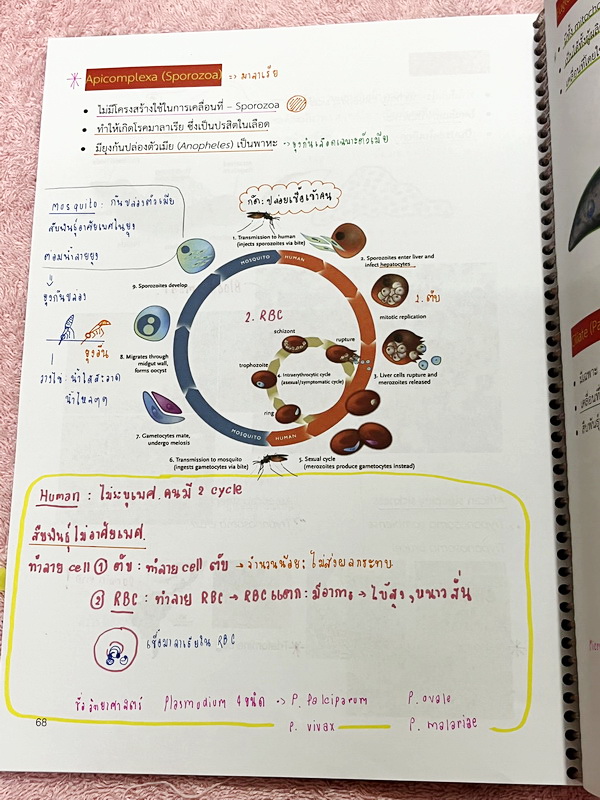 Apicomplexa (Sporozoa) => มาลาเรีย
• ไม่มีโครงสร้างใช้ในการเคลื่อนที่ – Sporozoa
• ทำให้เกิดโรคมาลาเรีย ซึ่งเป็นปรสิตในเลือด
• มียุงก้นปล่องตัวเมีย (Anopheles) เป็นพาหะ -> ยุงก้นเลือดเฉพาะตัวเมีย
Mosquito : ก้นปล่องตัวเมีย
สืบพันธุ์อาศัยเพศในยุง
ต่อมน้ำลายยุง
ยุงก้นปล่อง
ยุงอื่น
วางไข่ : น้ำใสสะอาด
น้ำไหลๆ
กัด : ปล่อยเชื้อเข้าคน
1. Transmission to human
(injects sporozoites via bite)
MOSQUITO HUMAN
2. Sporozoites enter liver and
infect hepatocytes
1. ตับ
mitotic replication
3. Liver cells rupture and
merozoites released
2. RBC
schizont
rupture
trophozoite
4. Intraerythrocytic cycle
(asexual/symptomatic cycle)
ring
9. Sporozoites develop
8. Migrates through
midgut wall,
forms oocyst
7. Gametocytes mate,
undergo meiosis
MOSQUITO HUMAN
6. Transmission to mosquito
(ingests gametocytes via bite)
5. Sexual cycle
(merozoites produce gametocytes instead)
Human : ไม่ระบุเพศ. คนมี 2 cycle
สืบพันธุ์ไม่อาศัยเพศ.
ทำลาย cell ① ตับ : ทำลาย cell ตับ → จำนวนน้อย : ไม่ส่งผลกระทบ
② RBC : ทำลาย RBC → RBC แตก : มีอาการ → ไข้สูง, หนาวสั่น
เชื้อมาลาเรียใน RBC
ชื่อวิทยาศาสตร์ Plasmodium 4 ชนิด -> P. falciparum P. ovale
P. vivax P. malariae
68